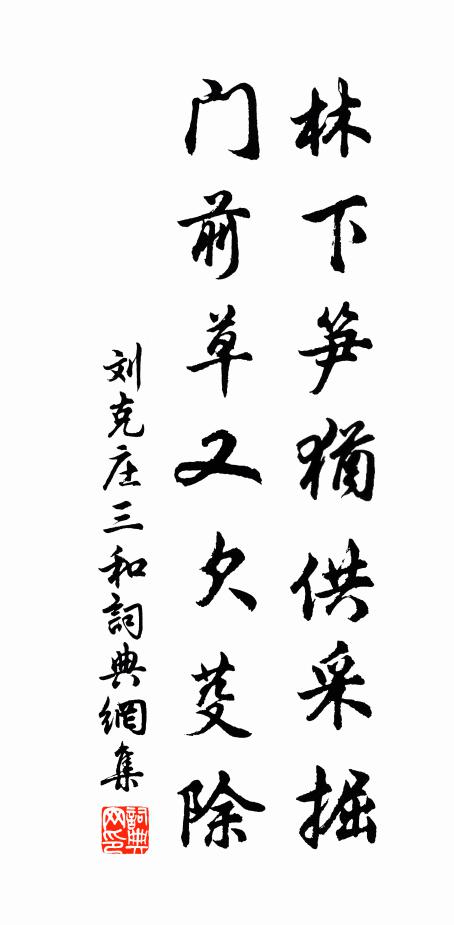 林下笋猶供采掘
门前草又欠芟除
刘克庄三和詞典網集
詞典
网印